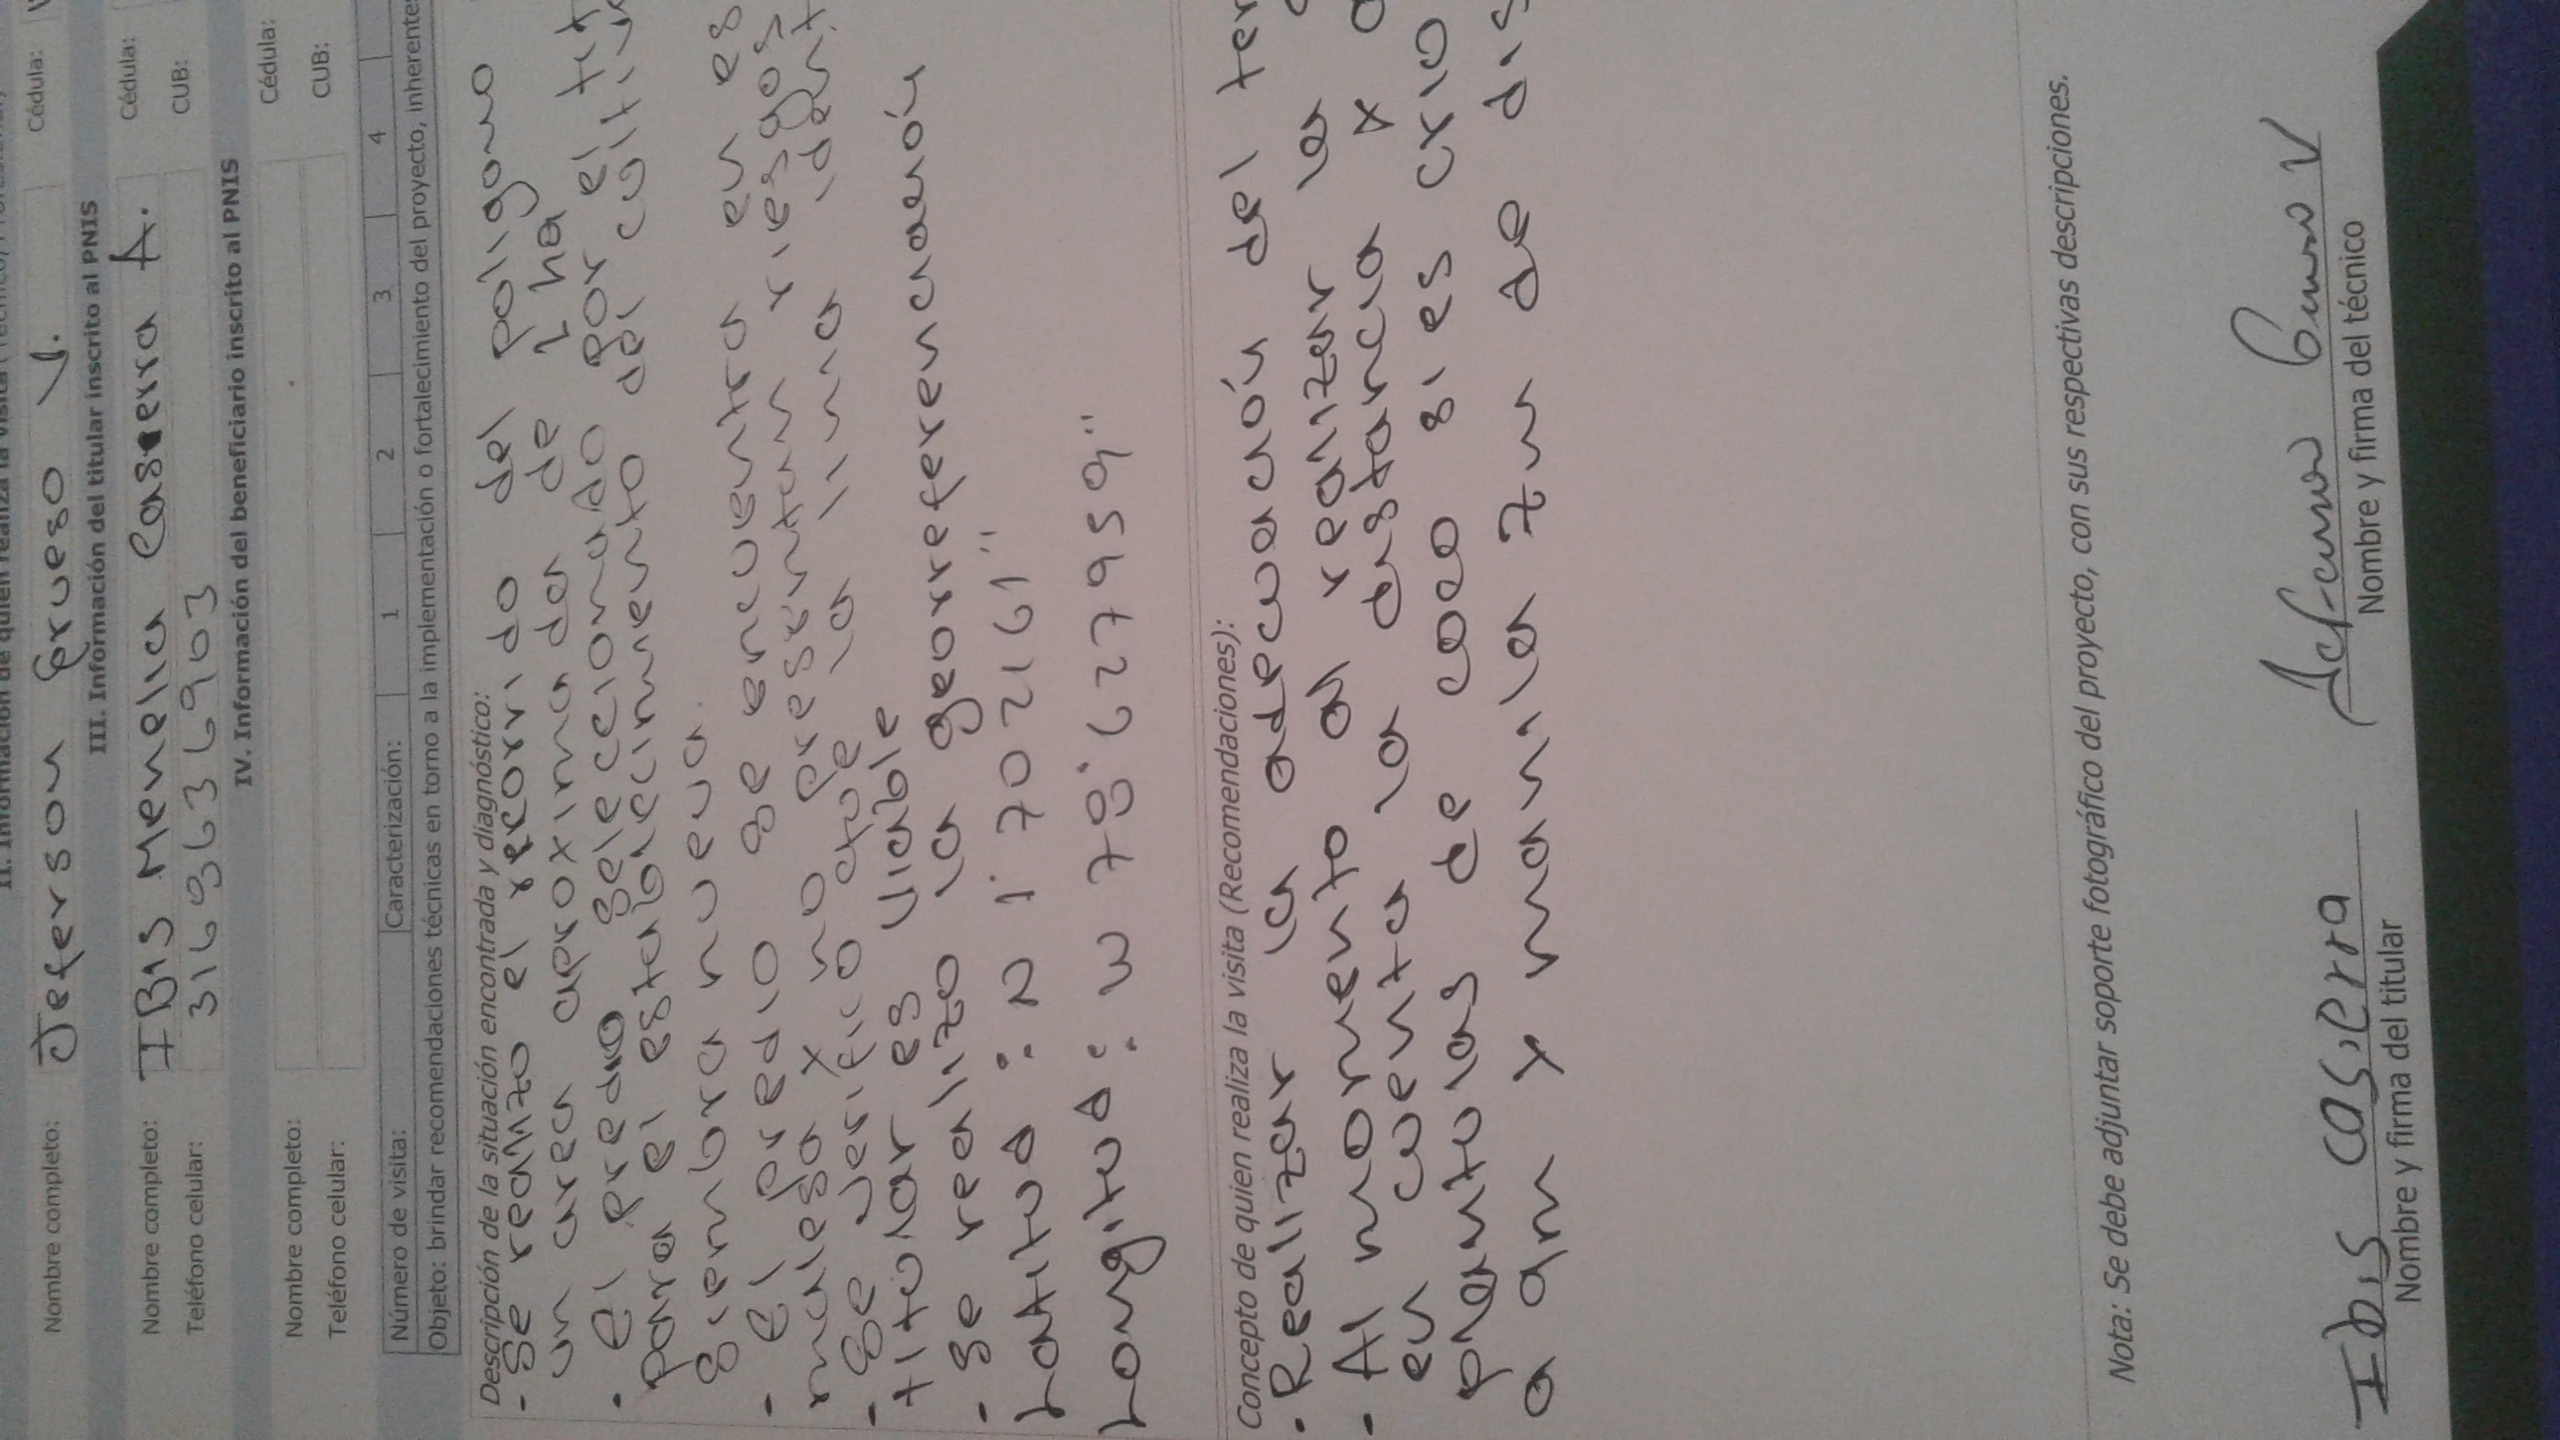 II. Información de quien realiza la visita
Nombre completo: Jeferson grueso V. Cédula:
III. Información del titular inscrito al PNIS
Nombre completo: IBIS Menelia Casierra A. Cédula:
Teléfono celular: 31693636903 CUB:
IV. Información del beneficiario inscrito al PNIS
Nombre completo: Cédula:
Teléfono celular: CUB:
Número de visita: Caracterización: 1 2 3 4
Objeto: brindar recomendaciones técnicas en torno a la implementación o fortalecimiento del proyecto, inherentes
Descripción de la situación encontrada y diagnóstico:
- Se realizo el recorrido del poligono
un area aproximada de 1 ha
· El predio selecionado por el
para el establecimiento del
siembra nueva.
- El predio se encuentra en
maleza y no presentan riesgos
- Se verifico que la
titular es viable
- Se realizo la georreferenciación
Latitud : N 1°702161"
Longitud : W 78°627959"
Concepto de quien realiza la visita (Recomendaciones):
· Realizar la adecuación del
- Al momento al realizar la
en cuenta la distancia y
plantulas de coco si es
a 9m y manila 7m de
Nota: Se debe adjuntar soporte fotográfico del proyecto, con sus respectivas descripciones.
Ibis casierra
Nombre y firma del titular Nombre y firma del técnico